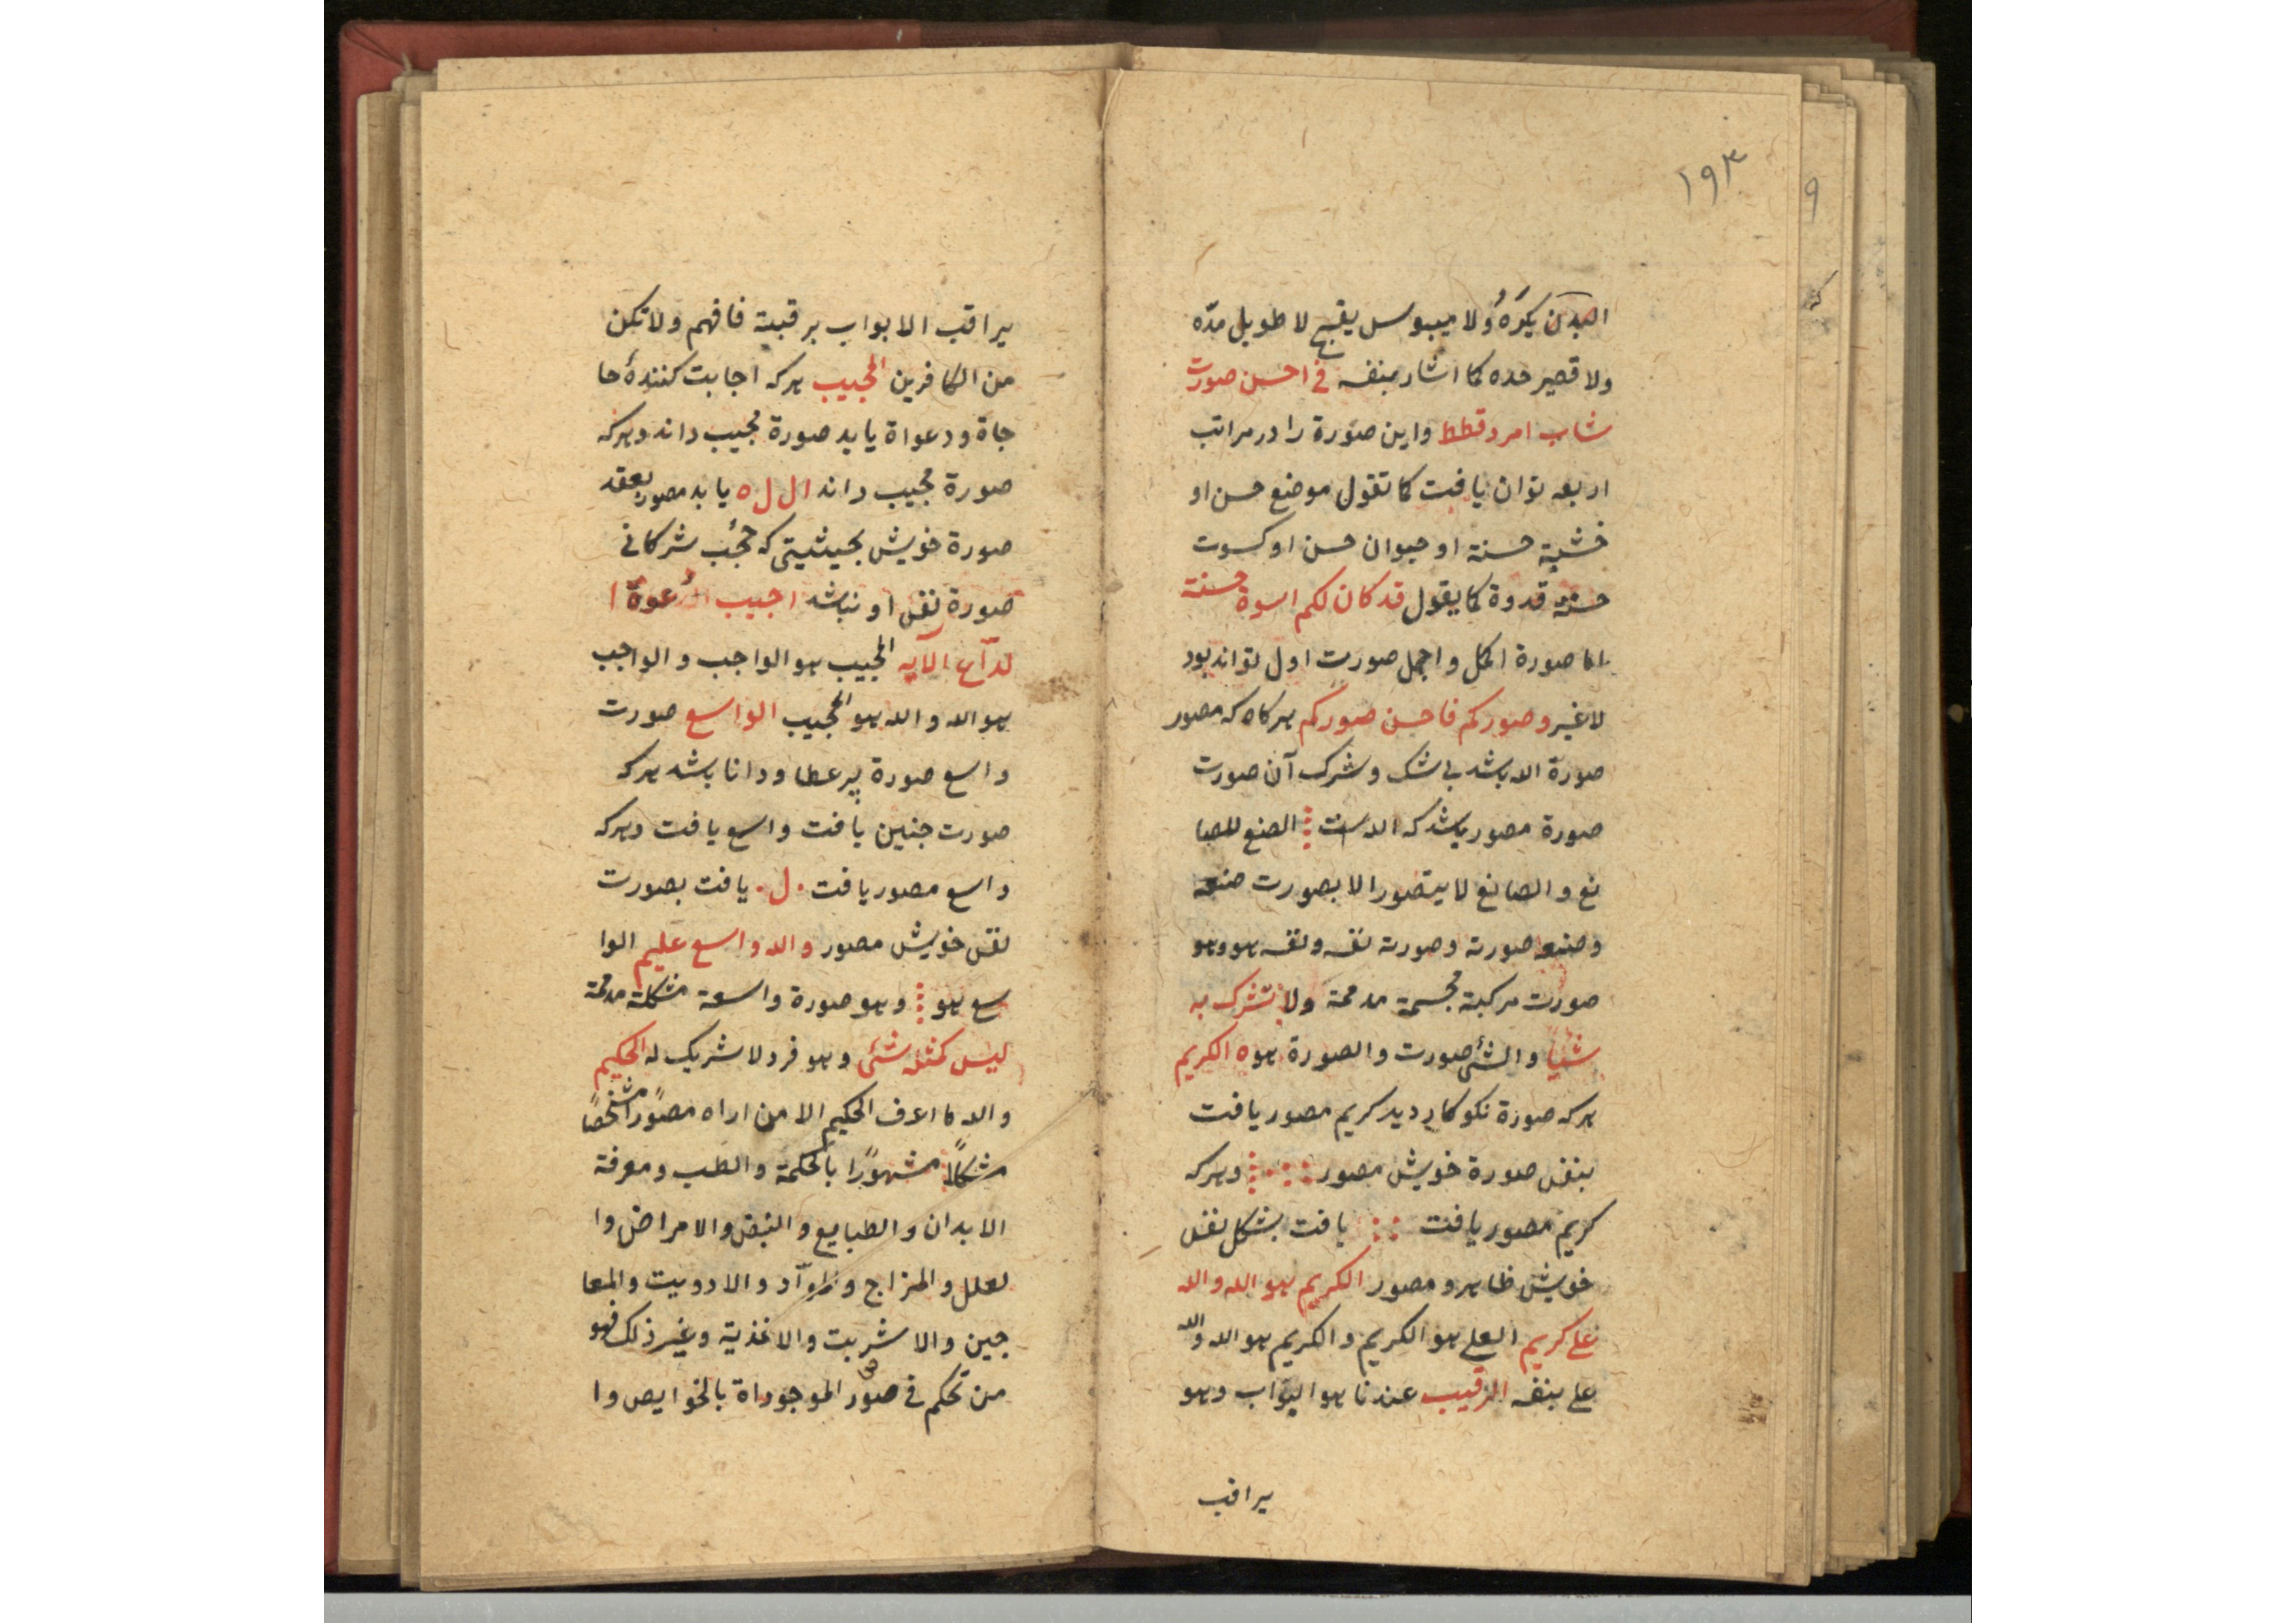 ۱۹۳
البدن یکره ولا میبوس یقبح لا طویل مدّه
ولا قصیر حده کما اشار بنفسه فی احسن صورت
شاب امرد قطط واین صورة را در مراتب
اربعه توان یافت کما تقول موضع حسن او
خشبة حسنة او حیوان حسن او کسوت
حسنة قدوة کما یقول قد کان لکم اسوة حسنة
اما صورة اکمل و اجمل صورت اول تواند بود
لا غیر و صورکم فاحسن صورکم هرکاه که مصور
صورة الله باشد بی شک و شرک آن صورت
صورة مصور باشد که الله است الصنع للصا
نع و الصانع لا یتصور الا بصورت صنعه
و صنعه صورته و صورته نفسه و نفسه هو و هو
صورت مرکبة مجسمة مدمحة ولا تشرک به
شیأ و الشئ صورت و الصورة هوه الکریم
هرکه صورة نکوکار دید کریم مصور یافت
بنفس صورة خویش مصور وهرکه
کریم مصور یافت یافت بشکل نفس
خویش ظاهر و مصور الکریم هو الله و الله
علی کریم العلی هو الکریم و الکریم هو الله و الله
علی بنفسه الرقیب عندنا هو البواب وهو
یراقب
یراقب الابواب برقبته فافهم ولا تکن
من الکافرین المجیب هرکه اجابت کنندهٔ حا
جاة و دعواة یابد صورة مجیب داند وهرکه
صورة مجیب داند ال ل ه یابد مصور بعقد
صورة خویش بحیثیتی که حجب شرکانی
صورة نفس او نباشد اجیب الدعوة ا
لداع الآیه المجیب هو الواجب و الواجب
هو الله و الله هو المجیب الواسع صورت
واسع صورة پر عطا و دانا باشد هرکه
صورت جنین یافت واسع یافت وهرکه
واسع مصور یافت . ل . یافت بصورت
نفس خویش مصور والله واسع علیم الوا
سع هو وهو صورة واسعة مشکلة مدمحة
لیس کمثله شئی وهو فرد لا شریک له الحکیم
والله ما اعرف الحکیم الا من اراه مصورًا مشخصًا
مشکلًا مشهورًا بالحکمة والطب ومعرفة
الابدان والطبایع والنبض والامراض وا
لعلل والمزاج والموآد والادویت والمعا
جین والاشربت والاغذیة وغیر ذلک فهو
من تحکم فی صور الموجوداة بالخوایص وا